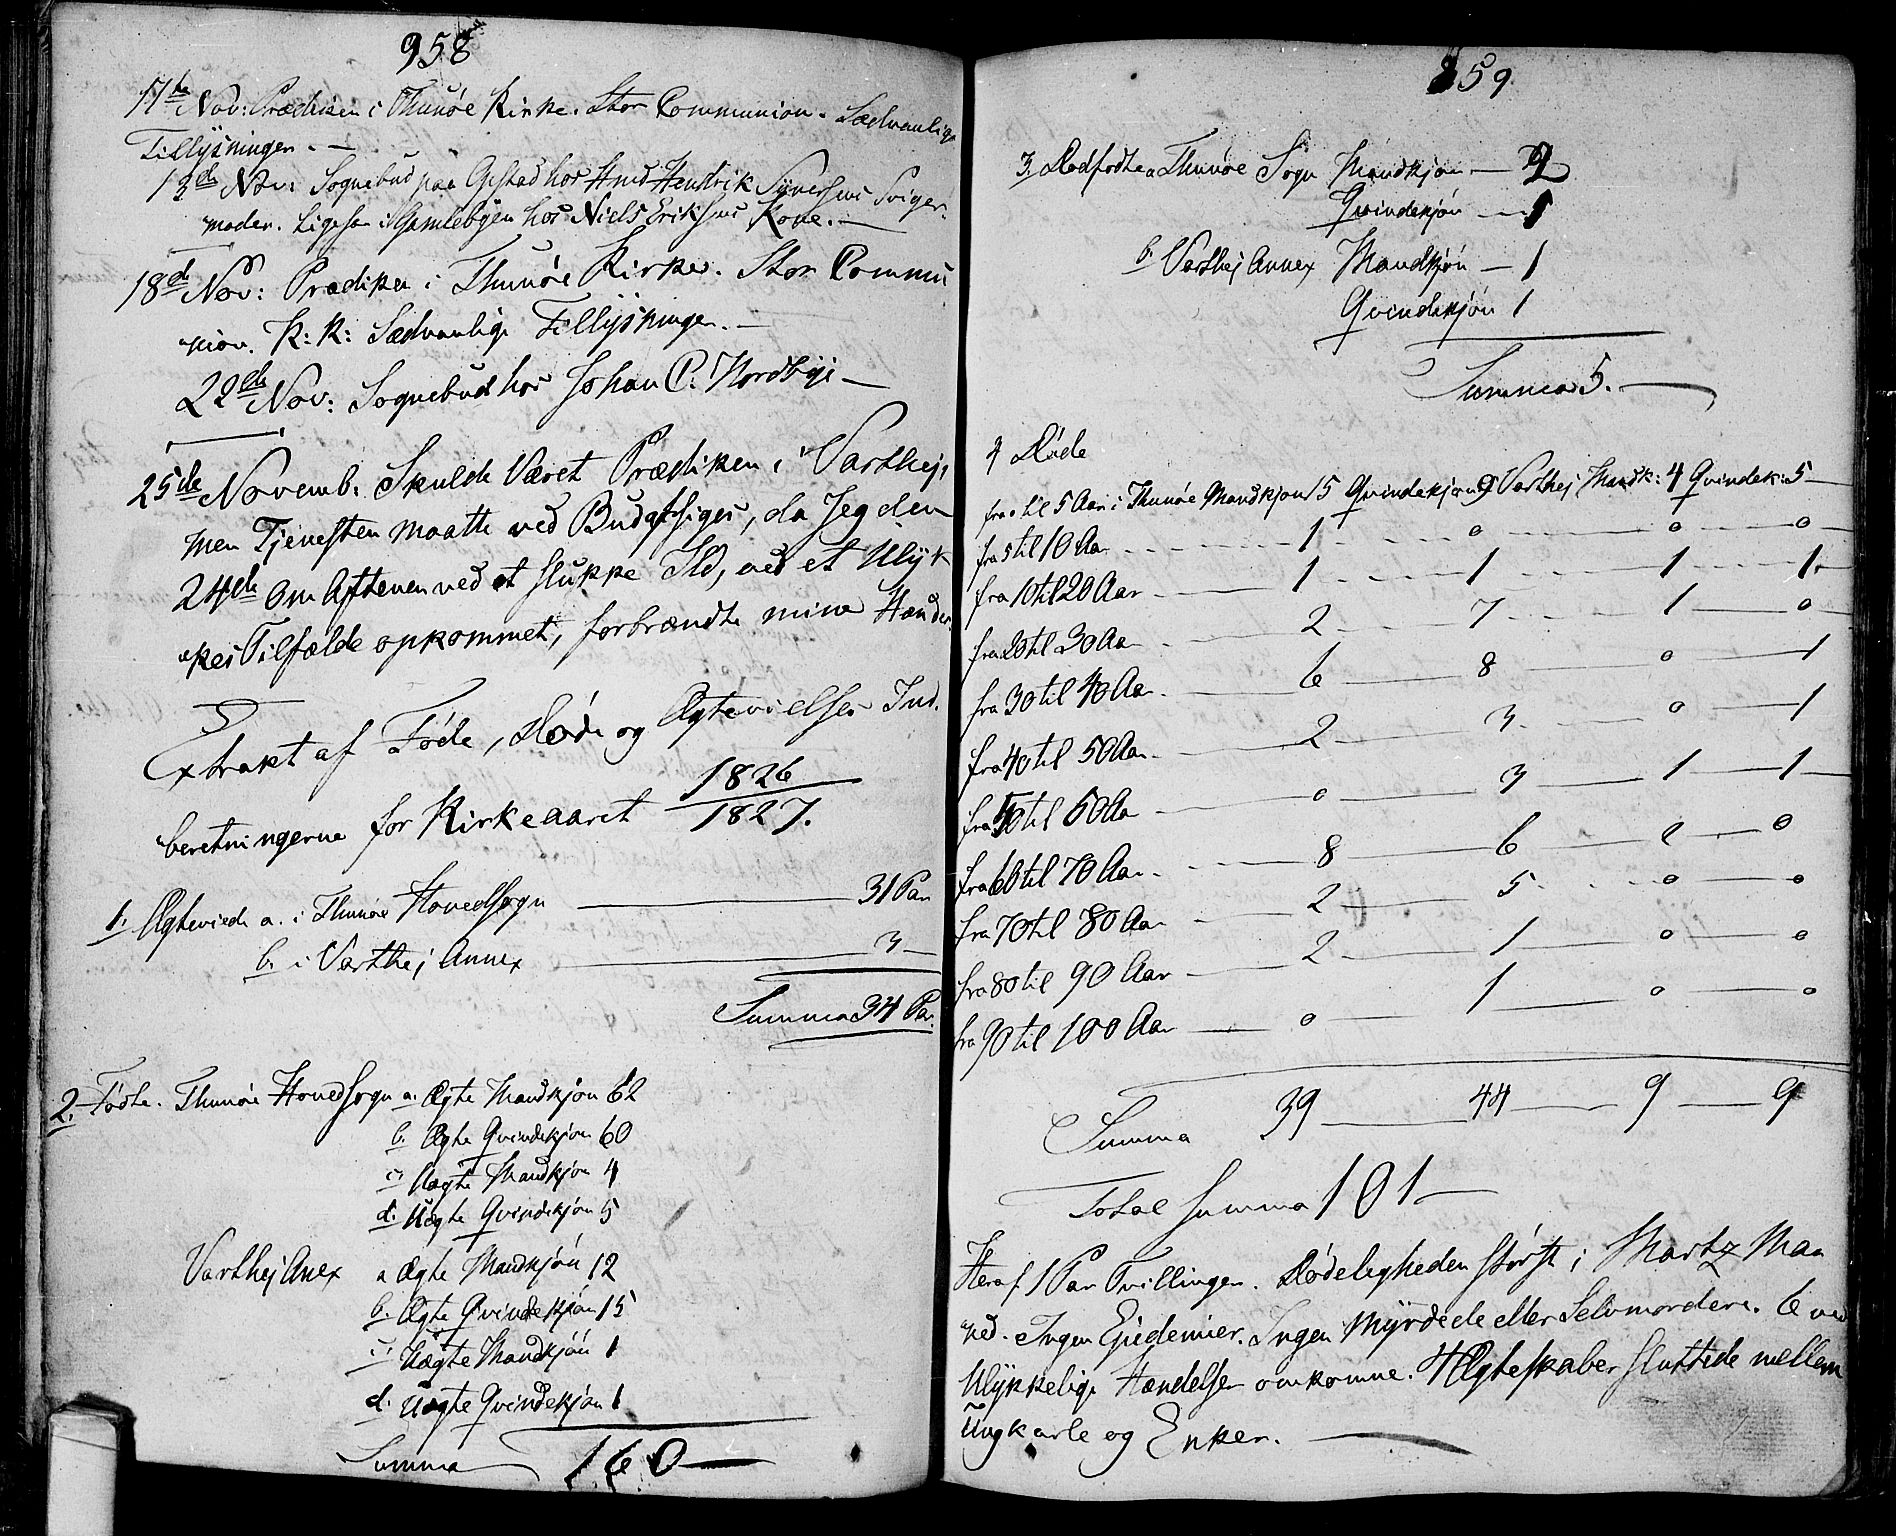 958
11te Nov: Prædiken i Thunöe Kirke. Stor Communion. Sædvanlige
Tillysninger. —
13de Nov: Sognebud paa Gjestad hos Hendrik Syversens Sviger-
moder. Ligesaa i Gamlebyen hos Niels Eriksens Kone. —
18de Nov: Prædiken i Thunöe Kirke. Stor Commu
nion. K: K: Sædvanlige Tillysninger. —
22de Nov: Sognebud hos Johan P. Nordbye —
25de Novemb. Skulde Været Prædiken i Varthej,
men Tjenesten maatte ved Bud afsiges, da Jeg den
24de om Aftenen ved at slukke Ild, ved et Ulyk
kes Tilfælde opkommet, forbrændte mine Hænder.
Extrakt af Föde, Döde og Ægtevielses Ind.
beretningerne for Kirkeaaret 1826/1827.
1. Ægteviede a. i Thunöe Hovedsogn — 31 Par
b. i Varthej Annex — 3 —
Summa 34 Par.
2. Födte. Thunöe Hovedsogn a. Ægte Mandkjön 62
b. Ægte Qvindekjön 60
c. Uægte Mandkjön 4
d. Uægte Qvindekjön 5
Varthej Anex a Ægte Mandkjön 12
b. Ægte Qvindekjön 15
c. Uægte Mandkjön 1
d. Uægte Qvindekjön 1
Summa 160 —
859.
3. Dödfödte a Thunöe Sogn Mandkjön — 2
Qvindekjön — 1
b. Varthej Annex Mandkjön — 1
Qvindekjön 1
Summa 5. —
4 Döde
fra 0 til 5 Aar i Thunöe Mandkjön 15 Qvindekjön 9 Varthej Mandk: 4 Qvindek: 5 —
fra 5 til 10 Aar 1 0 0 0
fra 10 til 20 Aar 1 1 1 1
fra 20 til 30 Aar 2 7 1 0
fra 30 til 40 Aar 6 8 0 1
fra 40 til 50 Aar 2 3 0 1
fra 50 til 60 Aar 0 3 1 1
fra 60 til 70 Aar 8 6 2 0
fra 70 til 80 Aar 2 5 0 0
fra 80 til 90 Aar 2 1 0 0
fra 90 til 100 Aar 0 1 0 0
Summa 39 — 44 — 9 — 9
Total summa 101 —
Heraf 1 Par Tvillinger. Dödeligheden störst i Martz Maa
ned. Ingen Epidemier. Ingen Myrdede eller Selvmordere. 6 ved
Ulykkelige Hændelser omkomne. 4 Ægteskaber sluttede mellem
Ungkarle og Enker. —